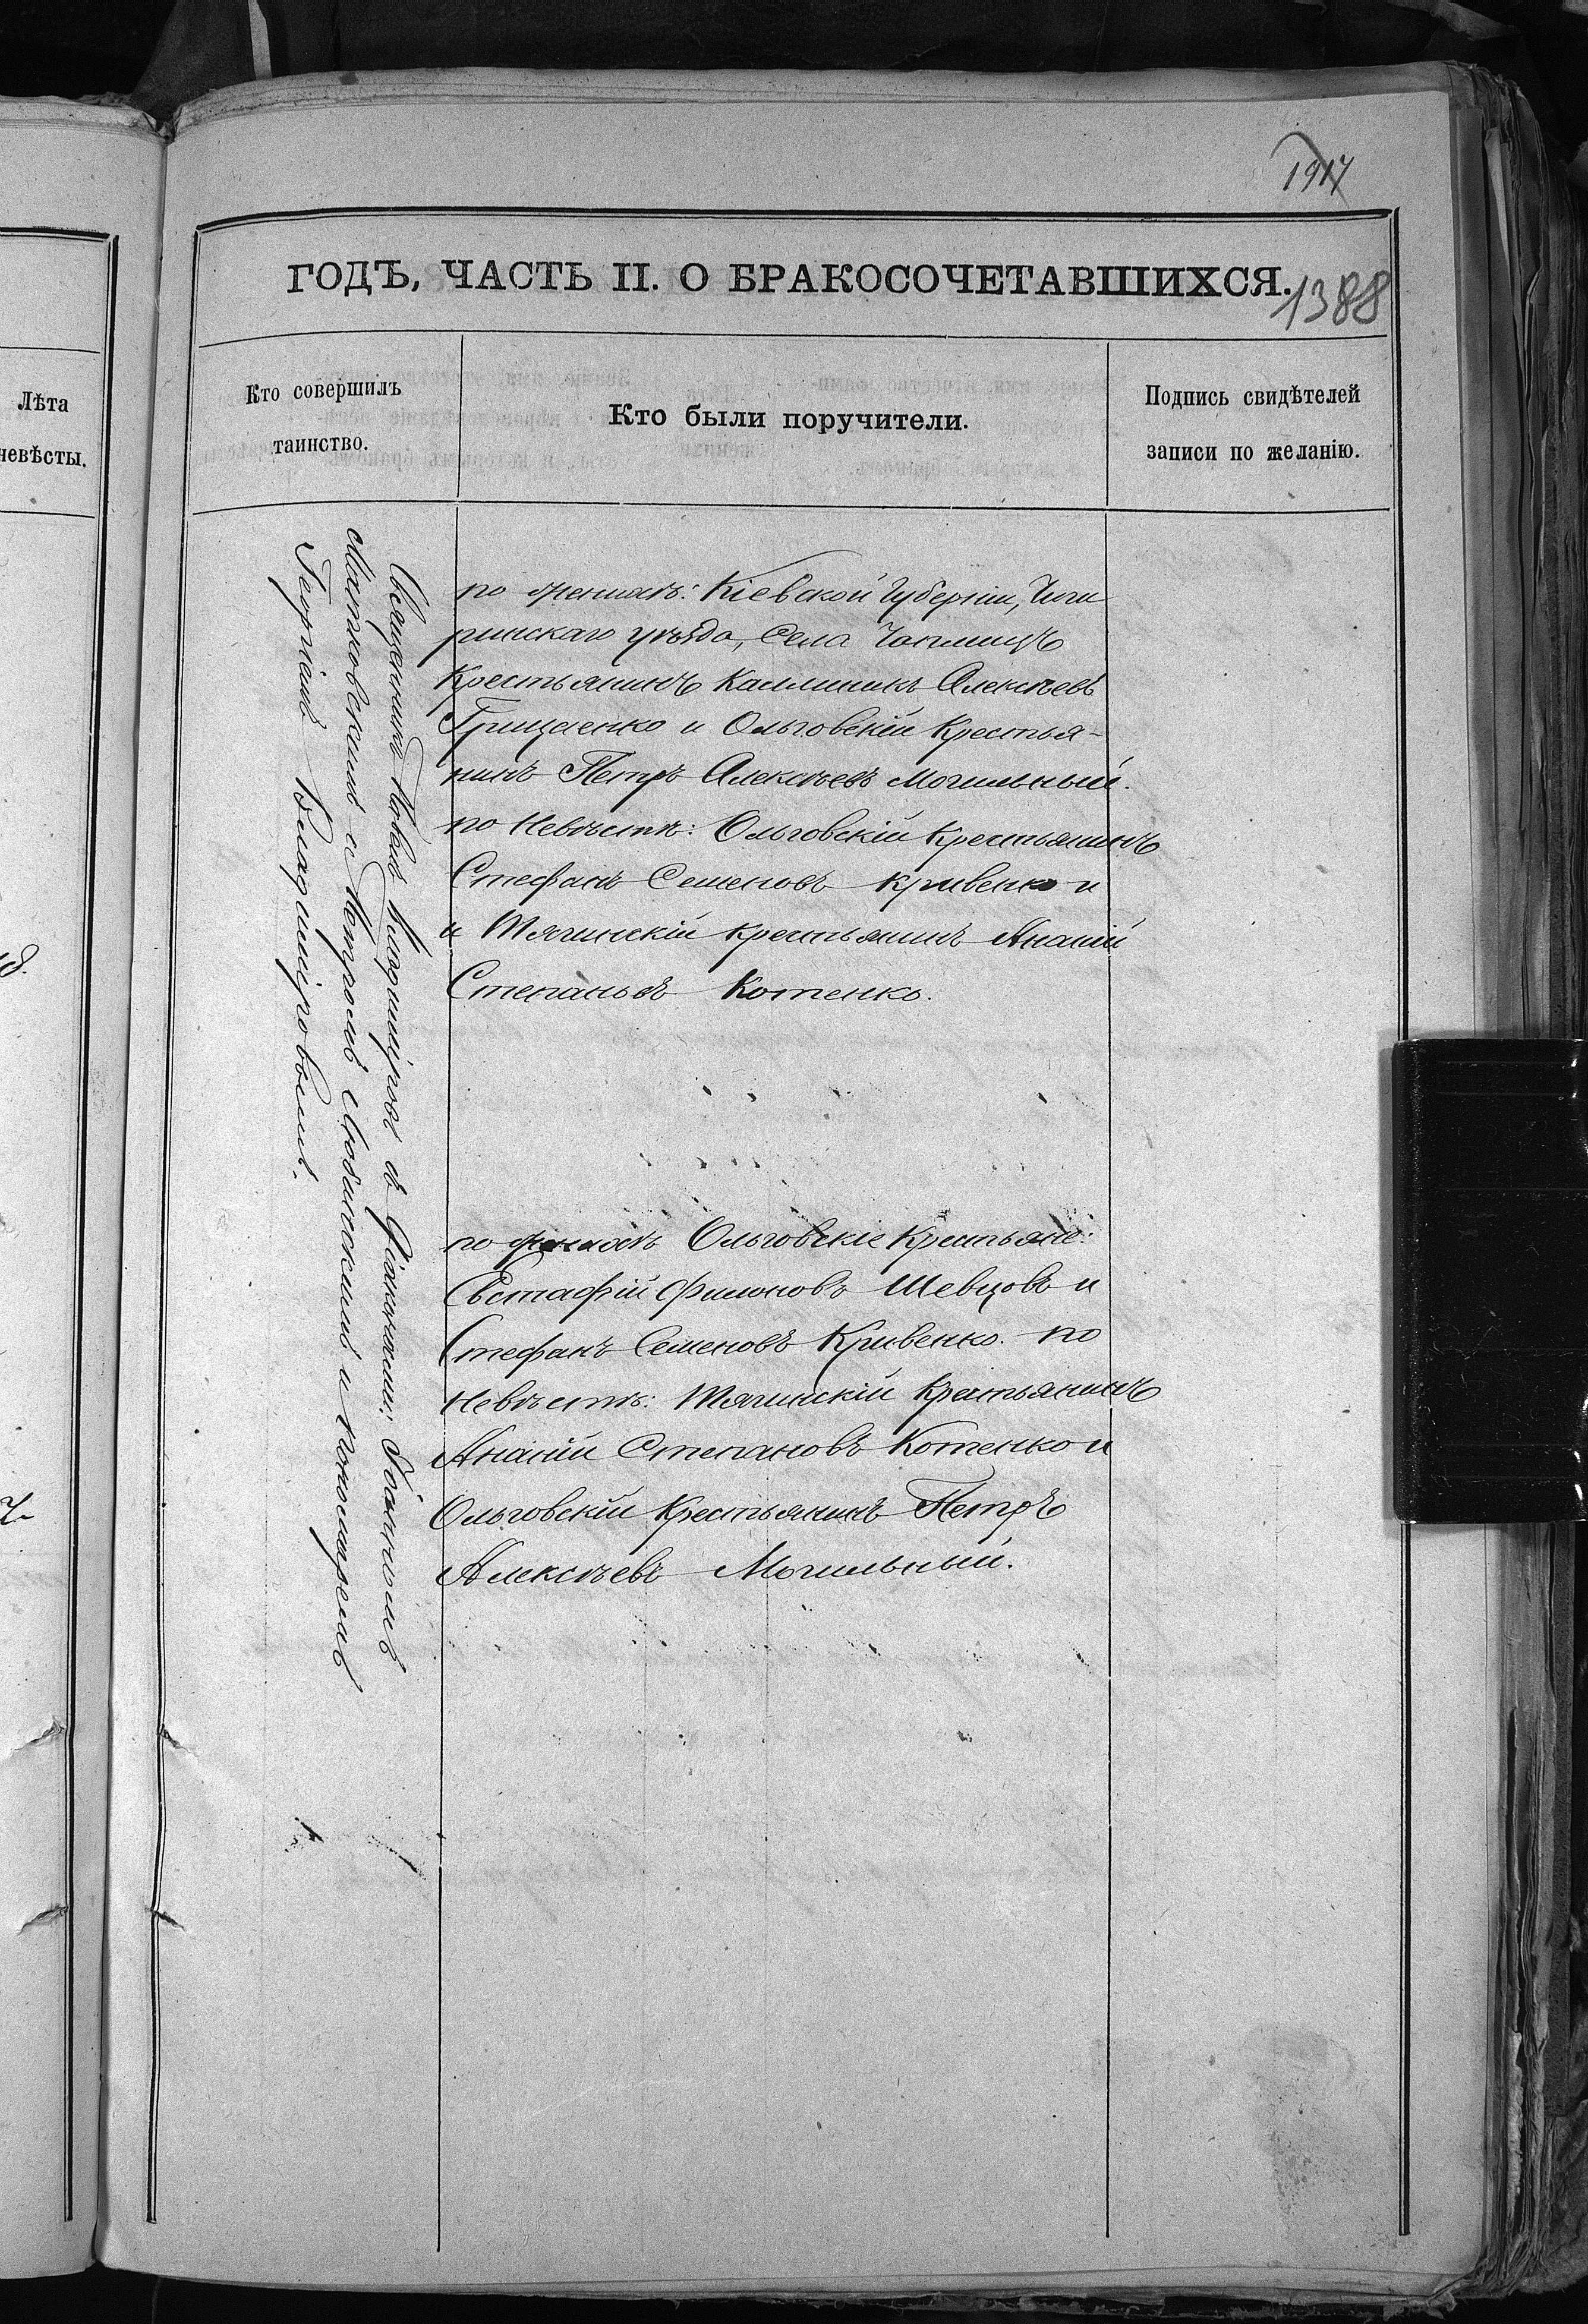 1917
ГОДЪ, ЧАСТЬ II. О БРАКОСОЧЕТАВШИХСЯ.
1388
Лѣта
невѣсты.
Кто совершилъ
таинство.
Кто были поручители.
Подпись свидѣтелей
записи по желанію.
Священникъ Владиміровъ съ Діаконами: Іоанномъ
и Петромъ и Пономаремъ
Георгіемъ Владиміровымъ.
по женихѣ: Кіевской Губерніи, Чиги
ринскаго уѣзда, Села
Крестьянинъ Каллиникъ Алексѣевъ
Грищенко и Ольговскій Крестья-
нинъ Петръ Алексѣевъ Могильный.
по Невѣстѣ: Ольговскій Крестьянинъ
Стефанъ Семеновъ Кривенко и
и Тягинскій крестьянинъ Ананій
Степановъ Котенко.
по женихѣ Ольговскіе Крестьяне:
Евстафій Филоновъ Шевцовъ и
Стефанъ Семеновъ Кривенко. по
Невѣстѣ: Тягинскій Крестьянинъ
Ананій Степановъ Котенко и
Ольговскій Крестьянинъ Петръ
Алексѣевъ Могильный.